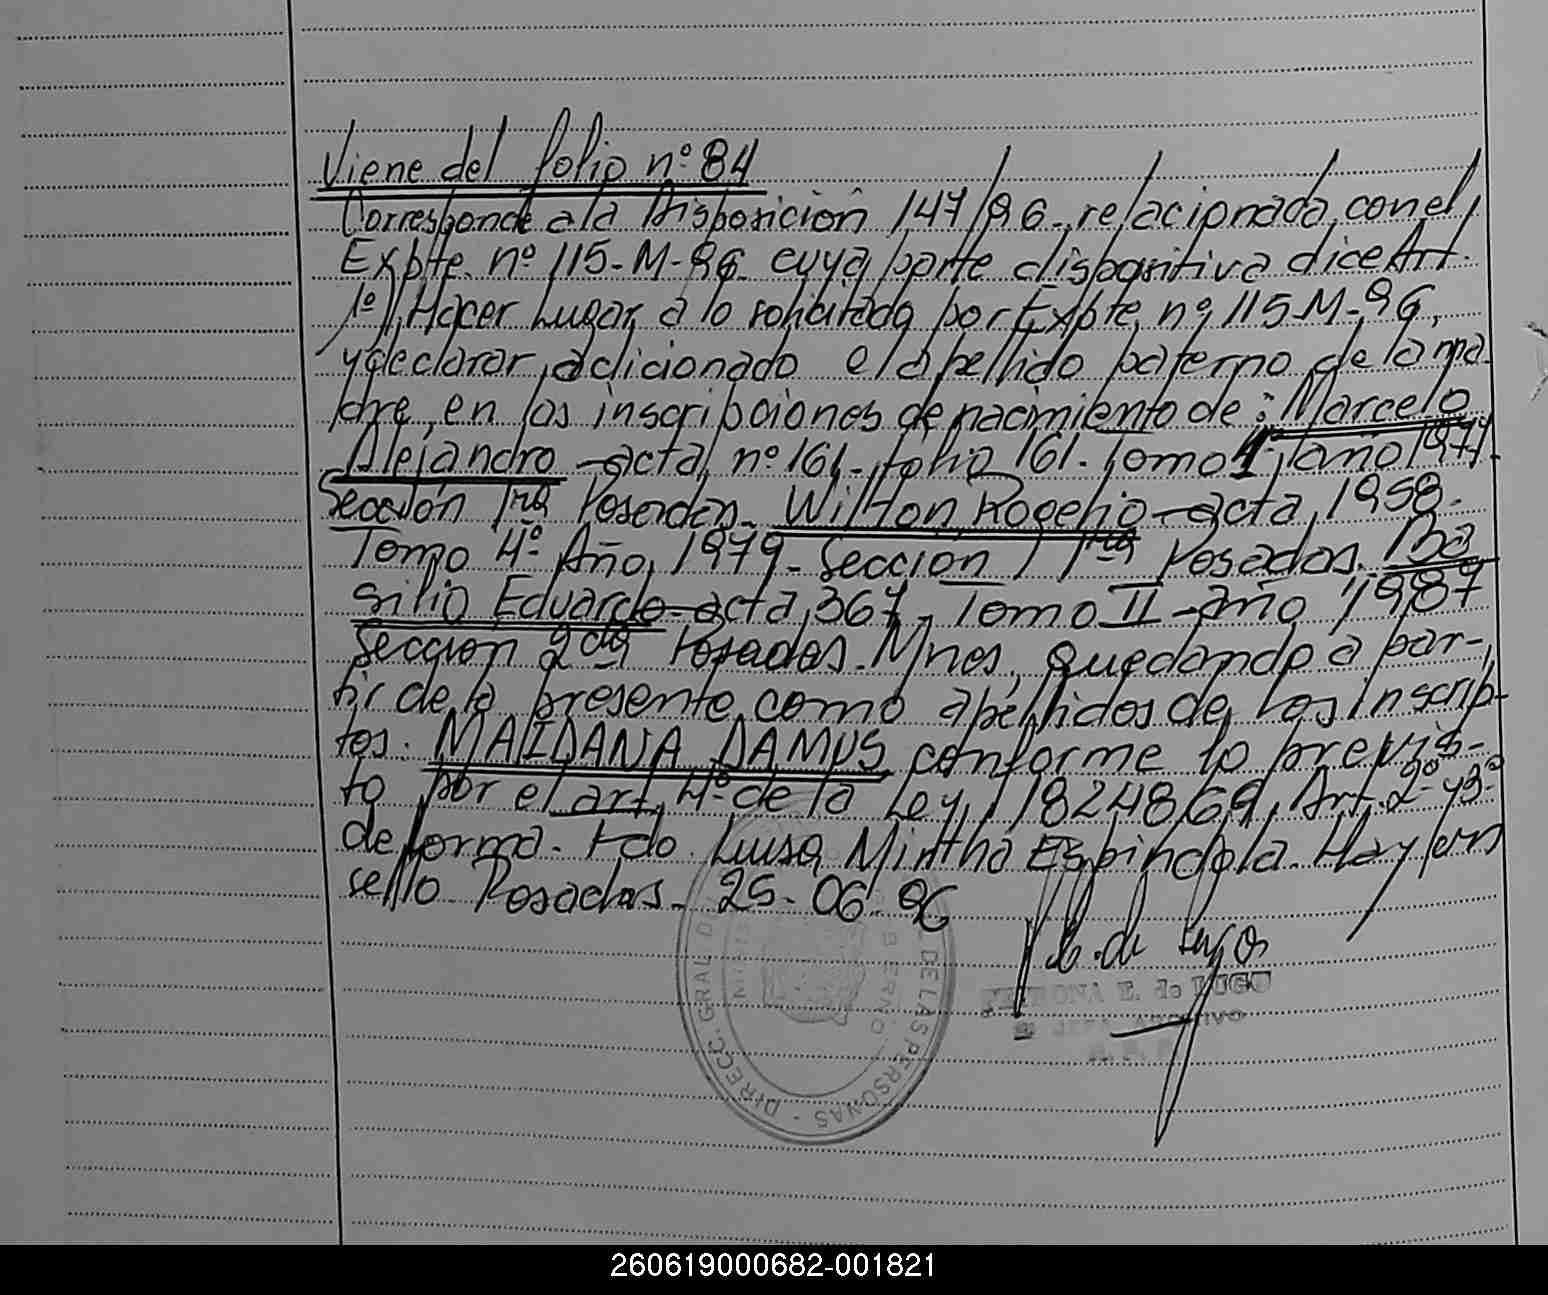 Viene del folio nº 84
Corresponde a la Disposición 147/96. relacionada con el
Expte. nº 115-M-96 cuya parte dispositiva dice Art.
1º) Hacer Lugar a lo solicitado por Expte. nº 115-M-96,
y declarar adicionado el apellido paterno de la ma-
dre, en las inscripciones de nacimiento de: Marcelo
Alejandro - acta nº 161 - folio 161. Tomo 1º, año 1977.
Sección 1ra Posadas. Wilton Rogelio - acta 1958.
Tomo 4º Año 1979 - Sección 1ra Posadas. Ba
silio Eduardo - acta 367 - Tomo II - año 1987
Sección 2da Posadas. Mnes, quedando a par-
tir de la presente como apellidos de los inscrip-
tos. MAIDANA DAMUS conforme lo previs-
to por el art. 4º de la Ley 18248/69, Art. 2º y 3º
de forma. Fdo. Luisa Mirtha Espindola. Hay un
sello Posadas. 25-06-96
E. de Lugo
PETRONA E. de LUGO
JEFE ARCHIVO
DIRECC. GRAL. DEL DE LAS PERSONAS
260619000682-001821